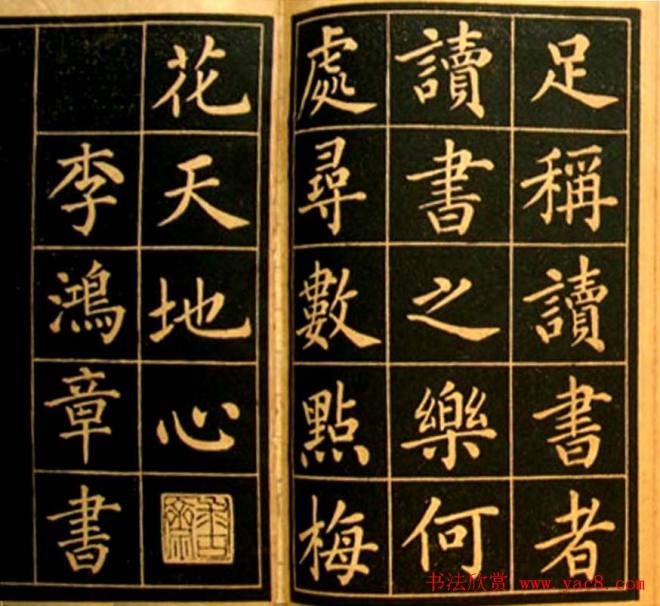 足稱讀書者
讀書之樂何
處尋數點梅
花天地心
李鴻章書
书法欣赏 www.yac8.com